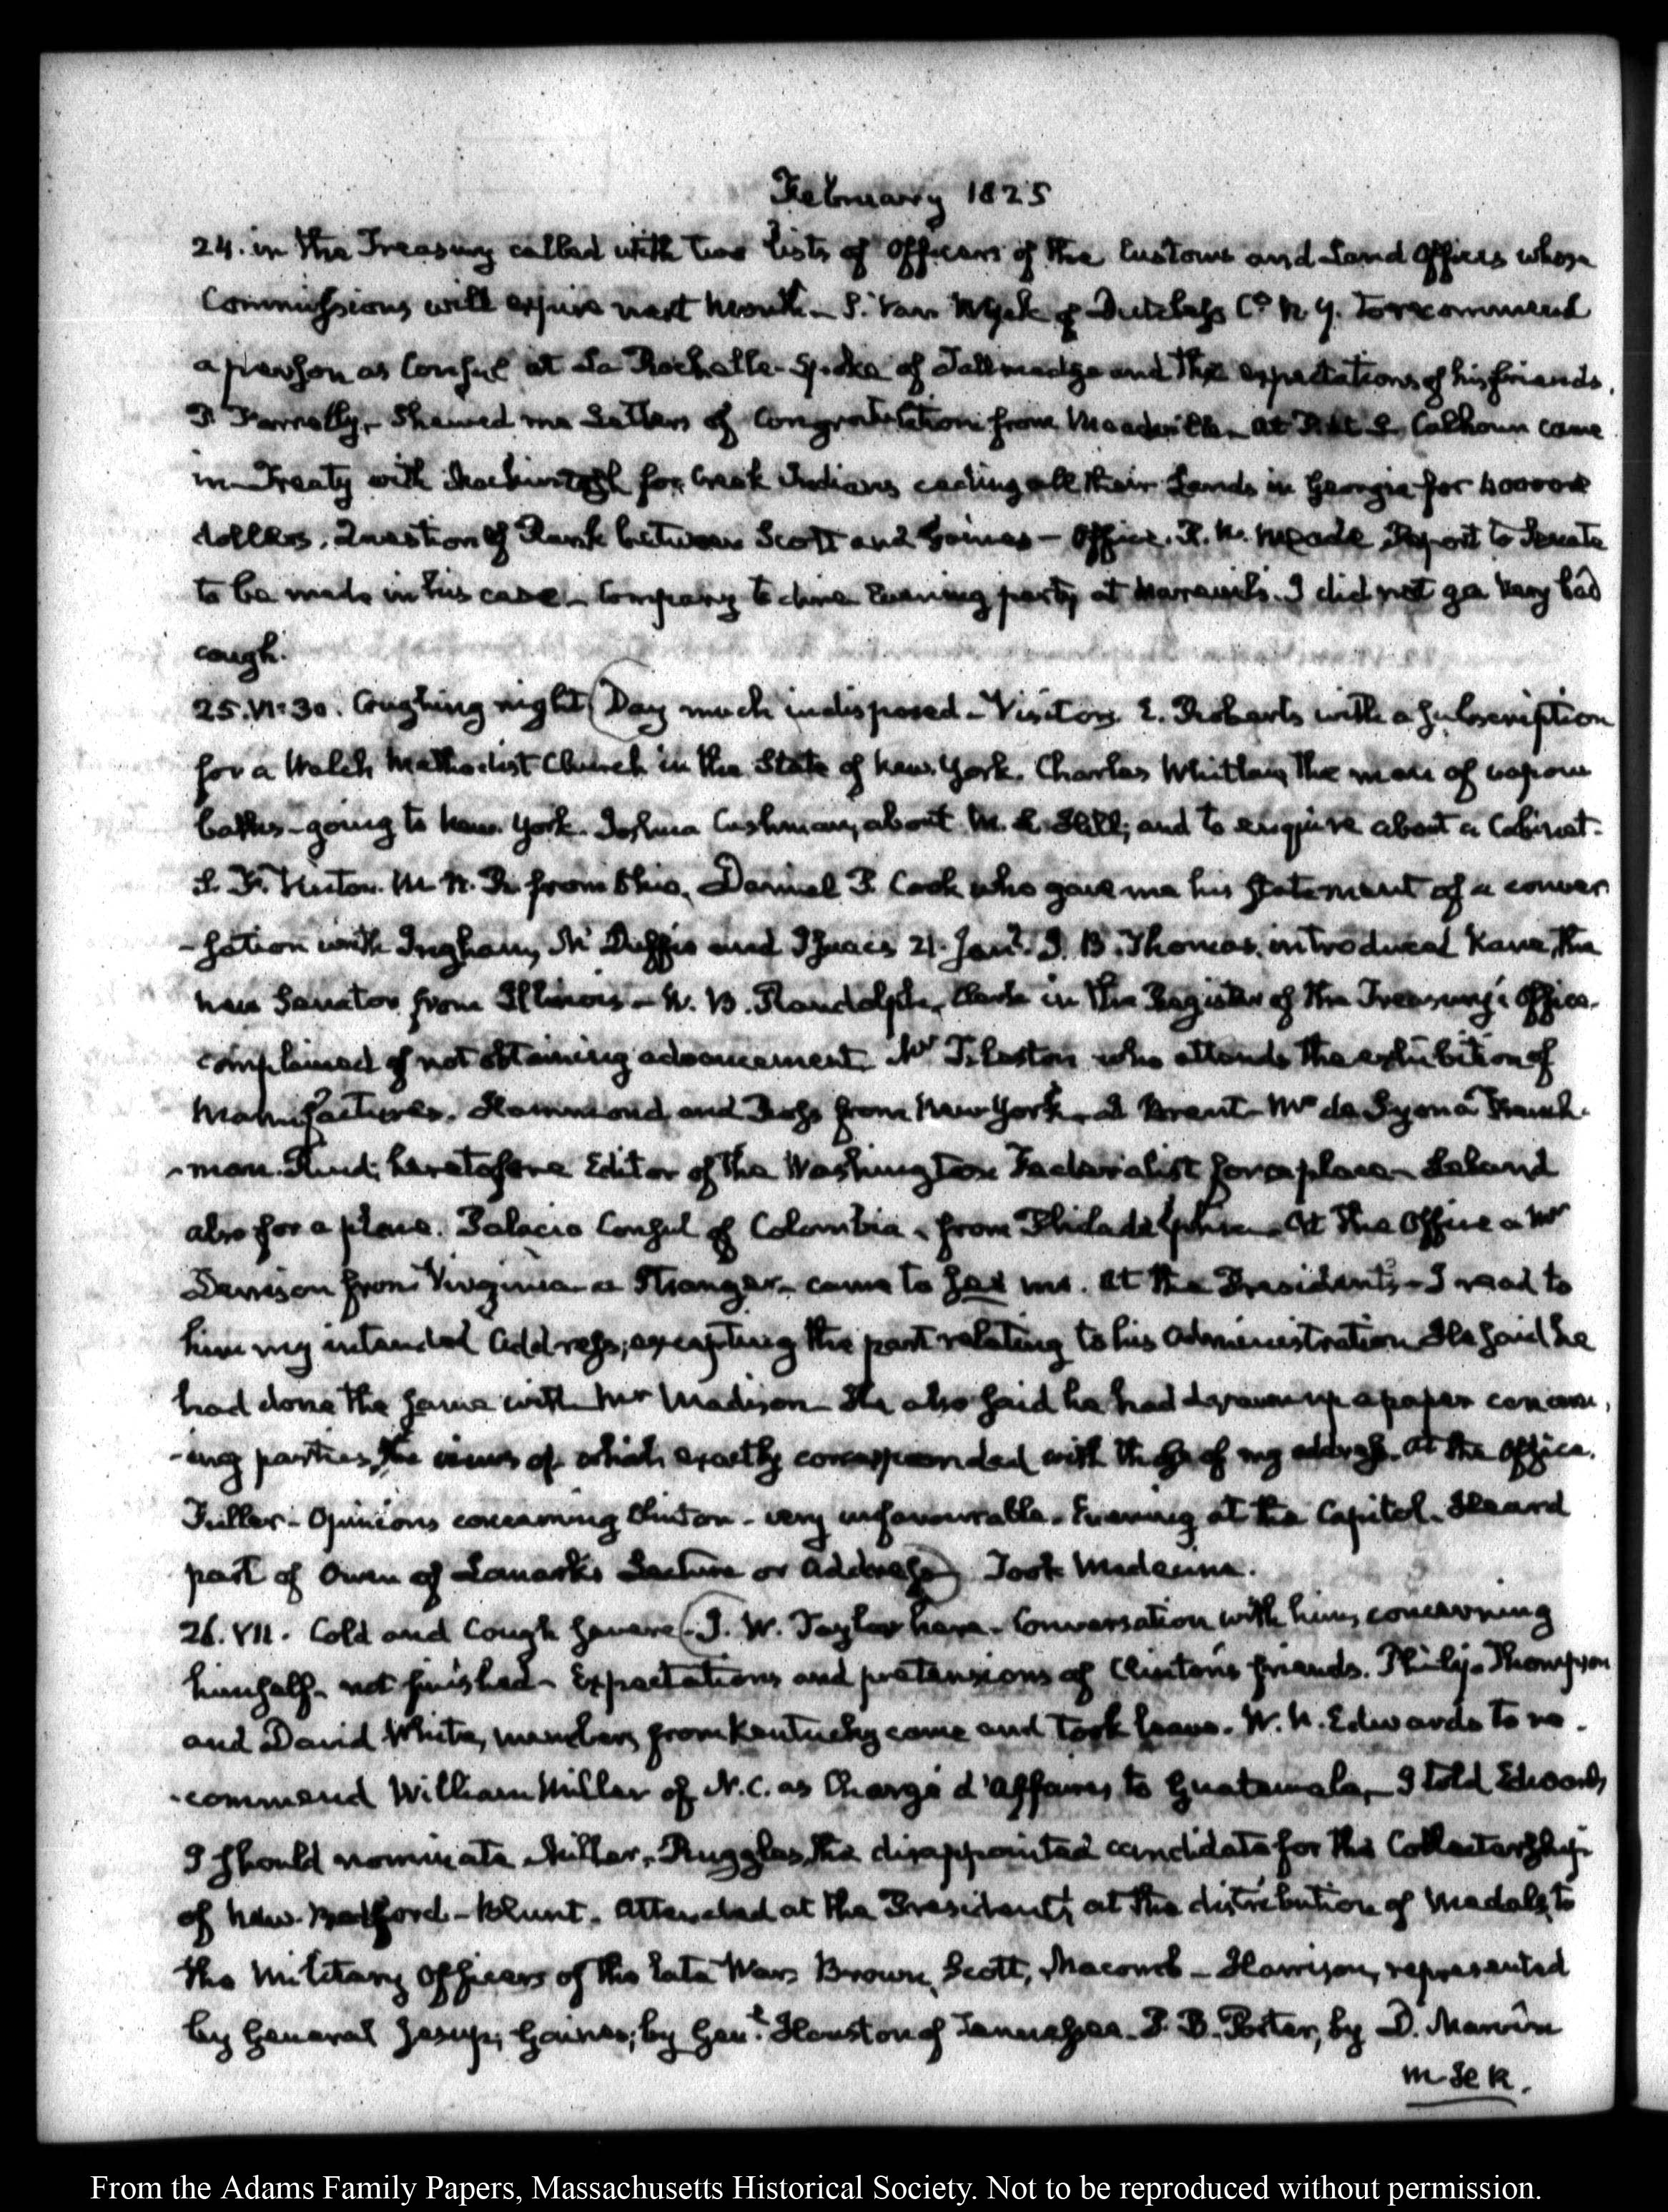 February 1825
24. in the Treasury called with two lists of Officers of the Customs and Land Offices whose
Commissions will expire next Month – S. Van Wyck of Dutchess Co. N.Y. To recommend
a person as Consul at La Rochelle – Spoke of Tallmadge and the expectations of his friends.
P. Farrelly, – Shewed me Letters of Congratulation from Meadville – at Calhoun came
in – Treaty with for Creek Indians ceding all their Lands in Georgia for 400000
dollars. Question of Rank between Scott and Gaines – Office. R. W. Meade Report to Senate
to be made in his case – Company to dine Evening party at I did not go Very bad
cough.
25. VI:30. Coughing night (Day much indisposed – Visitors E. Roberts with a subscription
for a Welch Methodist Church in the State of New York. Charles Whitlaw, the man of vapour
baths – going to New York. Joshua Cushman, about M. L. Hill; and to enquire about a Cabinet.
S. F. Vinton M. H. R. from Ohio. Daniel P. Cook who gave me his statement of a conver
-sation with Ingham, McDuffie and Isaacs 21. Jany. J. B. Thomas. introduced Kane, the
new Senator from Illinois – W. B. Randolph, Clerk in the Register of the Treasury's Office.
complained of not obtaining advancement. Mr Tileston who attends the exhibition of
Manufactures. Hammond and from New York. Brent – Mr de Syon a French-
-man. Rind; heretofore Editor of the Washington Federalist for a place – Leland
also for a place. Palacio Consul of Colombia, from Philadelphia – At the Office a Mr
Denison from Virginia – a Stranger – came to see me. At the President's – I read to
him my intended Address; excepting the part relating to his Administration He said he
had done the same with Mr Madison – He also said he had drawn up a paper concern,
-ing parties, the views of which exactly corresponded with those of my address. At the Office.
Fuller – Opinions concerning Clinton – very unfavourable. Evening at the Capitol. Heard
part of Owen of Lanark's Lecture or Address) Took Medecine.
26. VII. Cold and Cough severe (J. W. Taylor here – Conversation with him, concerning
himself – not finished – Expectations and pretensions of Clinton's friends. Philip Thompson
and David White, members from Kentucky came and took leave. W. N. Edwards to re-
-commend William Miller of N.C. as Chargé d'Affaires to Guatemala, – I told Edwards
I should nominate Miller. Ruggles, the disappointed candidate for the Collectorship
of New-Bedford – Blunt. Attended at the President's at the distribution of Medals, to
the Military Officers of the late War. Brown, Scott, Macomb – Harrison, represented
by General Jesup; Gaines; by Genl. Houston of Tennessee. P. B. Porter, by D. Marvin
M. H. R.
From the Adams Family Papers, Massachusetts Historical Society. Not to be reproduced without permission.